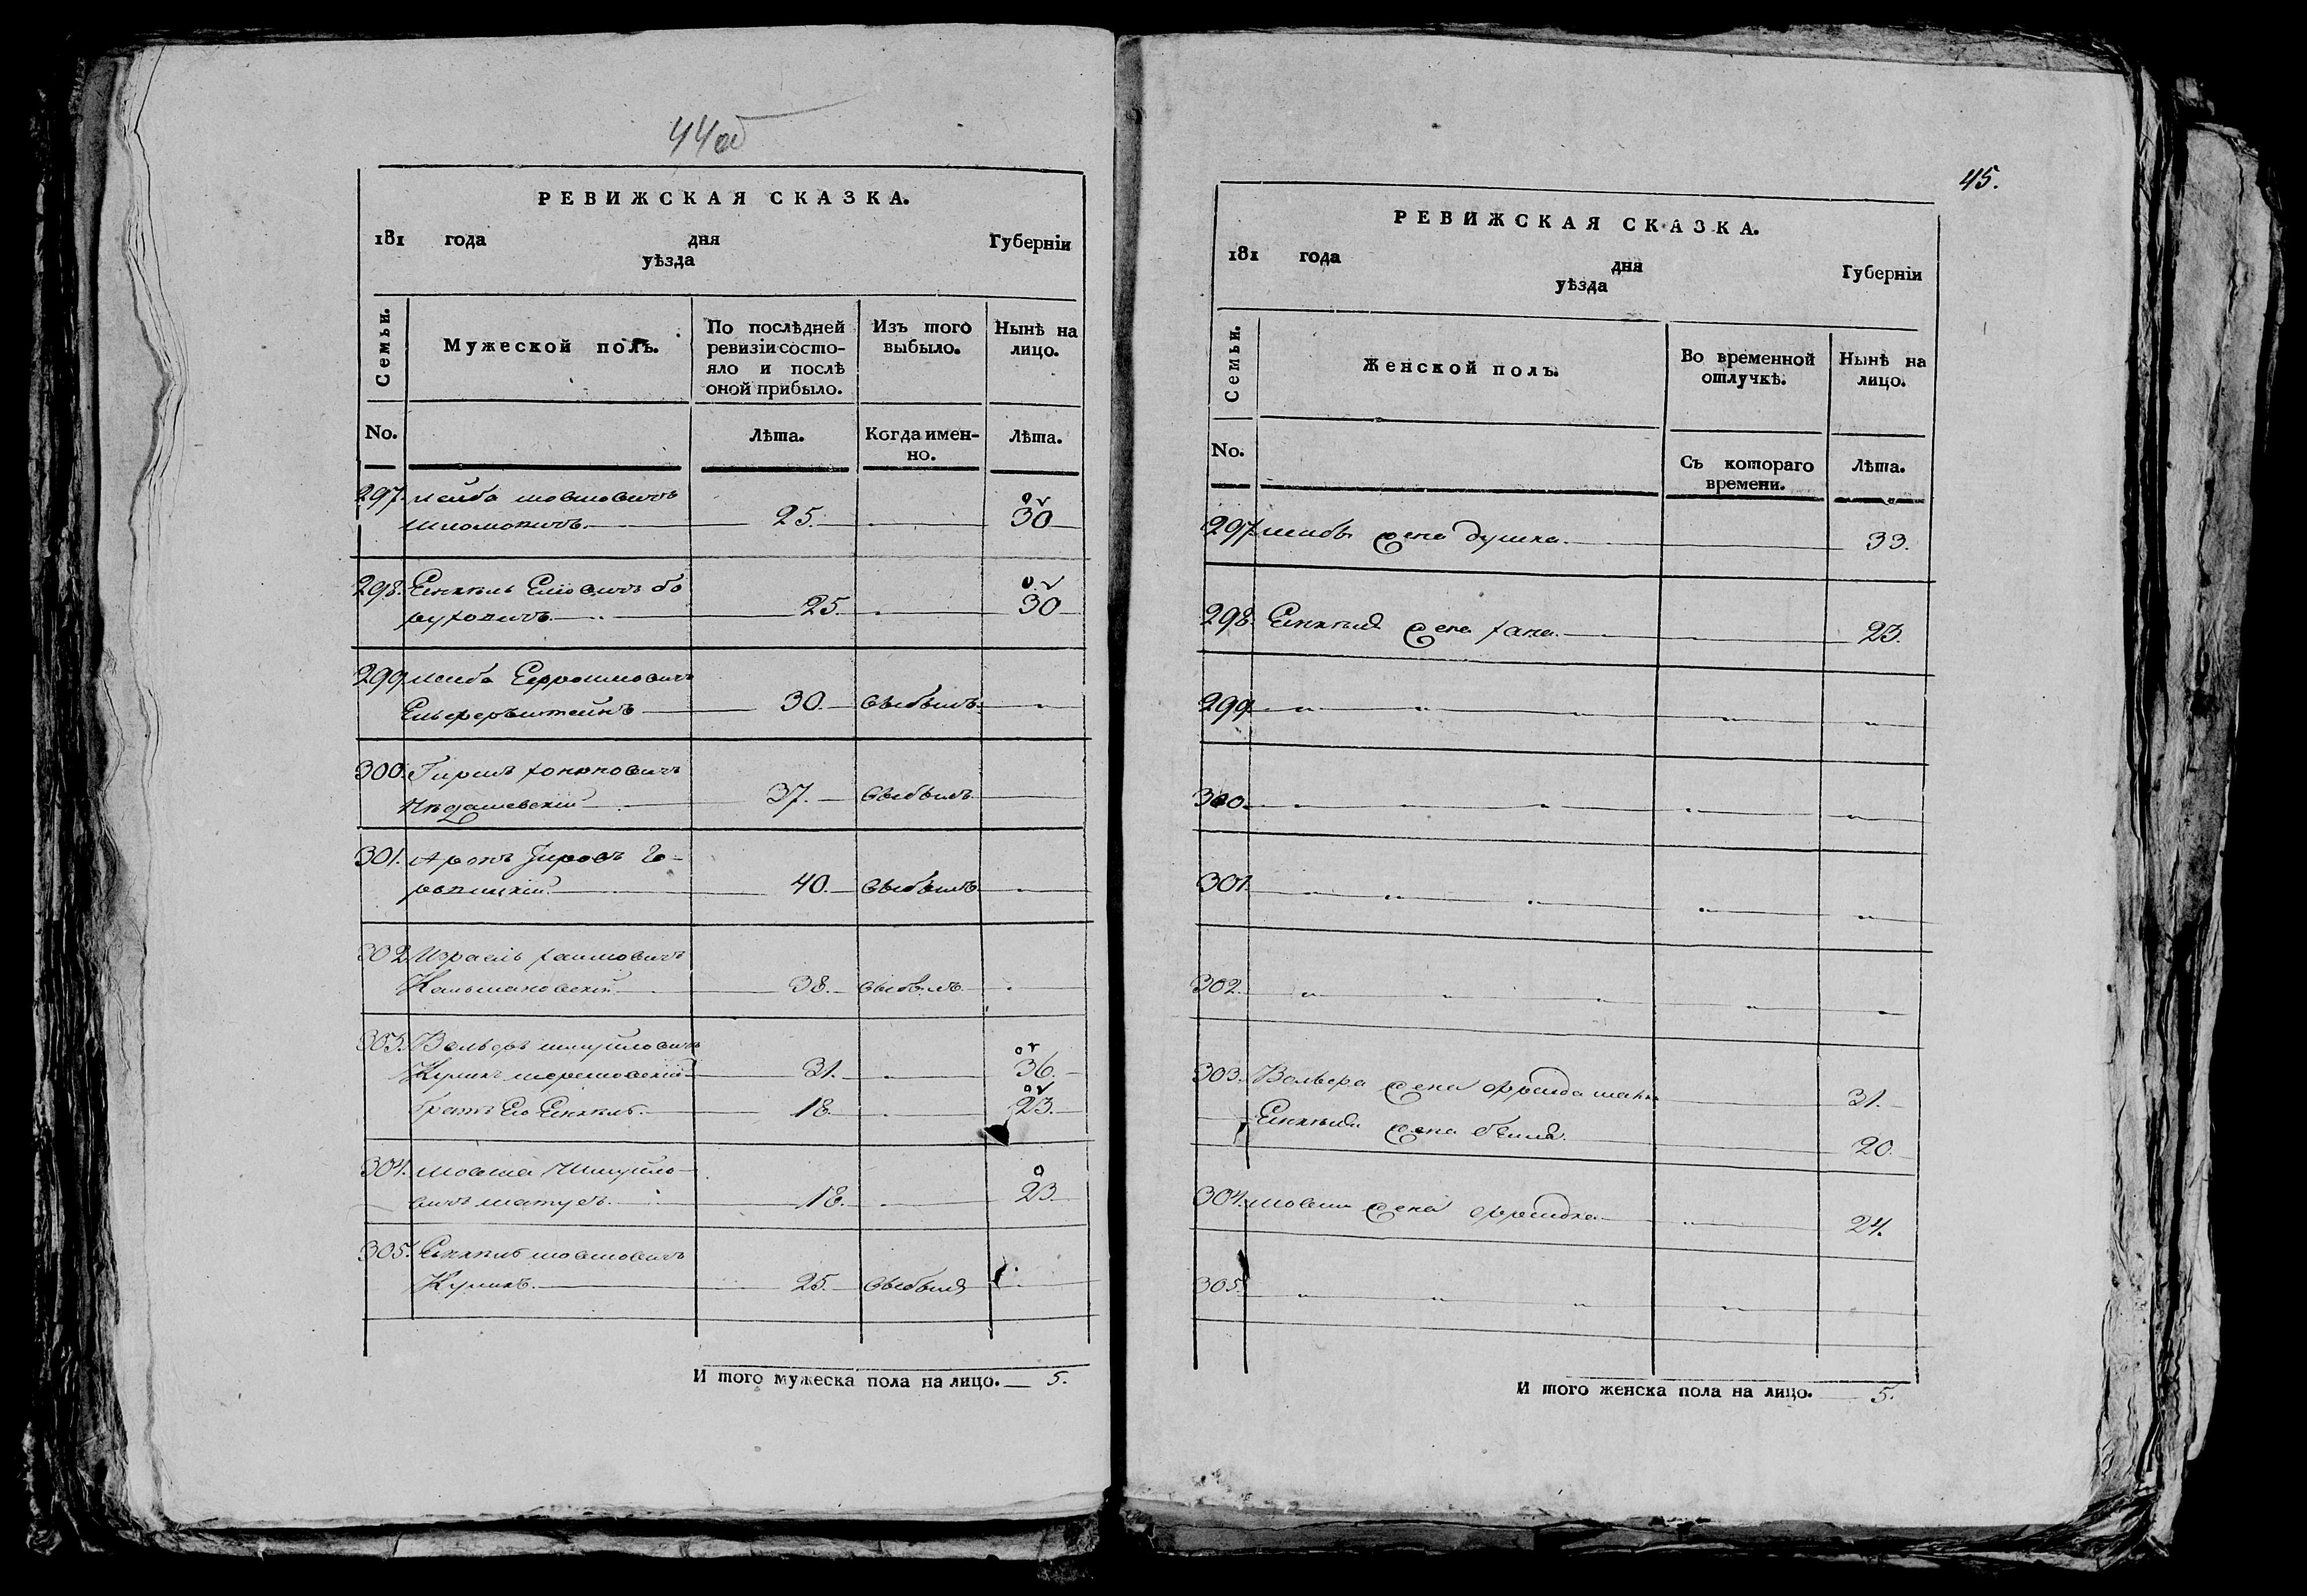 44об
РЕВИЖСКАЯ СКАЗКА.
181 года дня Губерніи
уѣзда
Семьи.
Мужеской полъ.
По послѣдней ревизіи состо-
яло и послѣ
оной прибыло.
Изъ того
выбыло.
Нынѣ на
лицо.
No.
Лѣта.
Когда имен-
но.
Лѣта.
297. Лейба Мовшовичъ
Шломовичъ. 25. 30
298. Еннкель Еліовичъ бо
руховичъ. 25. 30
299. Лейба
30. выбылъ
300. Гиршъ
37. выбылъ
301. Аронъ
40. выбылъ
302. Израель Хаимовичъ
Кальмановскій 38. выбылъ
303. Вольфъ Шмуйловичъ
31. 36.
Братъ Ео Еннкель. 18. 23.
304. Мовша Шмуйло-
вичъ Матусъ. 18. 23.
305. Еннкель Мовшовичъ
Куликъ. 25. выбылъ
И того мужеска пола на лицо. 5.
45.
РЕВИЖСКАЯ СКАЗКА.
181 года дня Губерніи
уѣзда
Семьи.
Женской полъ.
Во временной
отлучкѣ.
Нынѣ на
лицо.
No.
Съ котораго
времени.
Лѣта.
297. Лейбы жена Душка. 33.
298. Еннкеля жена Хана. 23.
299.
300.
301.
302.
303. Вольфа жена Фрейда 31.
Еннкеля жена Бейля. 20.
304. Мовши жена Фрейдка 24.
305.
И того женска пола на лицо. 5.